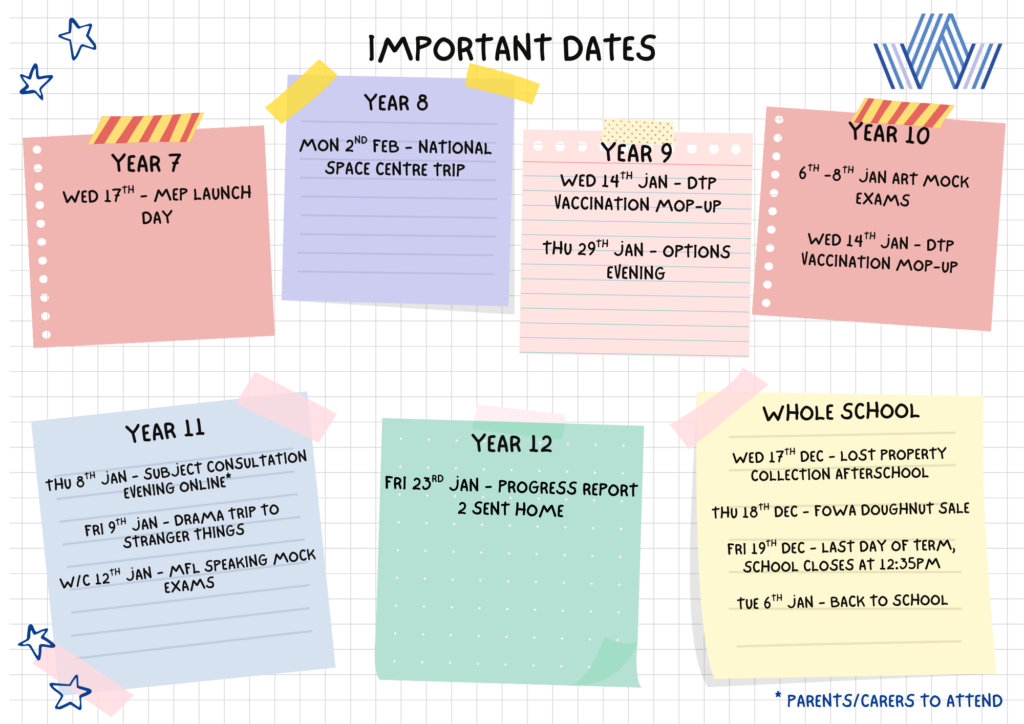 IMPORTANT DATES
YEAR 7
WED 17TH - MEP LAUNCH
DAY
YEAR 8
MON 2ND FEB - NATIONAL
SPACE CENTRE TRIP
YEAR 9
WED 14TH JAN - DTP
VACCINATION MOP-UP
THU 29TH JAN - OPTIONS
EVENING
YEAR 10
6TH -8TH JAN ART MOCK
EXAMS
WED 14TH JAN - DTP
VACCINATION MOP-UP
YEAR 11
THU 8TH JAN - SUBJECT CONSULTATION
EVENING ONLINE*
FRI 9TH JAN - DRAMA TRIP TO
STRANGER THINGS
W/C 12TH JAN - MFL SPEAKING MOCK
EXAMS
YEAR 12
FRI 23RD JAN - PROGRESS REPORT
2 SENT HOME
WHOLE SCHOOL
WED 17TH DEC - LOST PROPERTY
COLLECTION AFTERSCHOOL
THU 18TH DEC - FOWA DOUGHNUT SALE
FRI 19TH DEC - LAST DAY OF TERM,
SCHOOL CLOSES AT 12:35PM
TUE 6TH JAN - BACK TO SCHOOL
* PARENTS/CARERS TO ATTEND